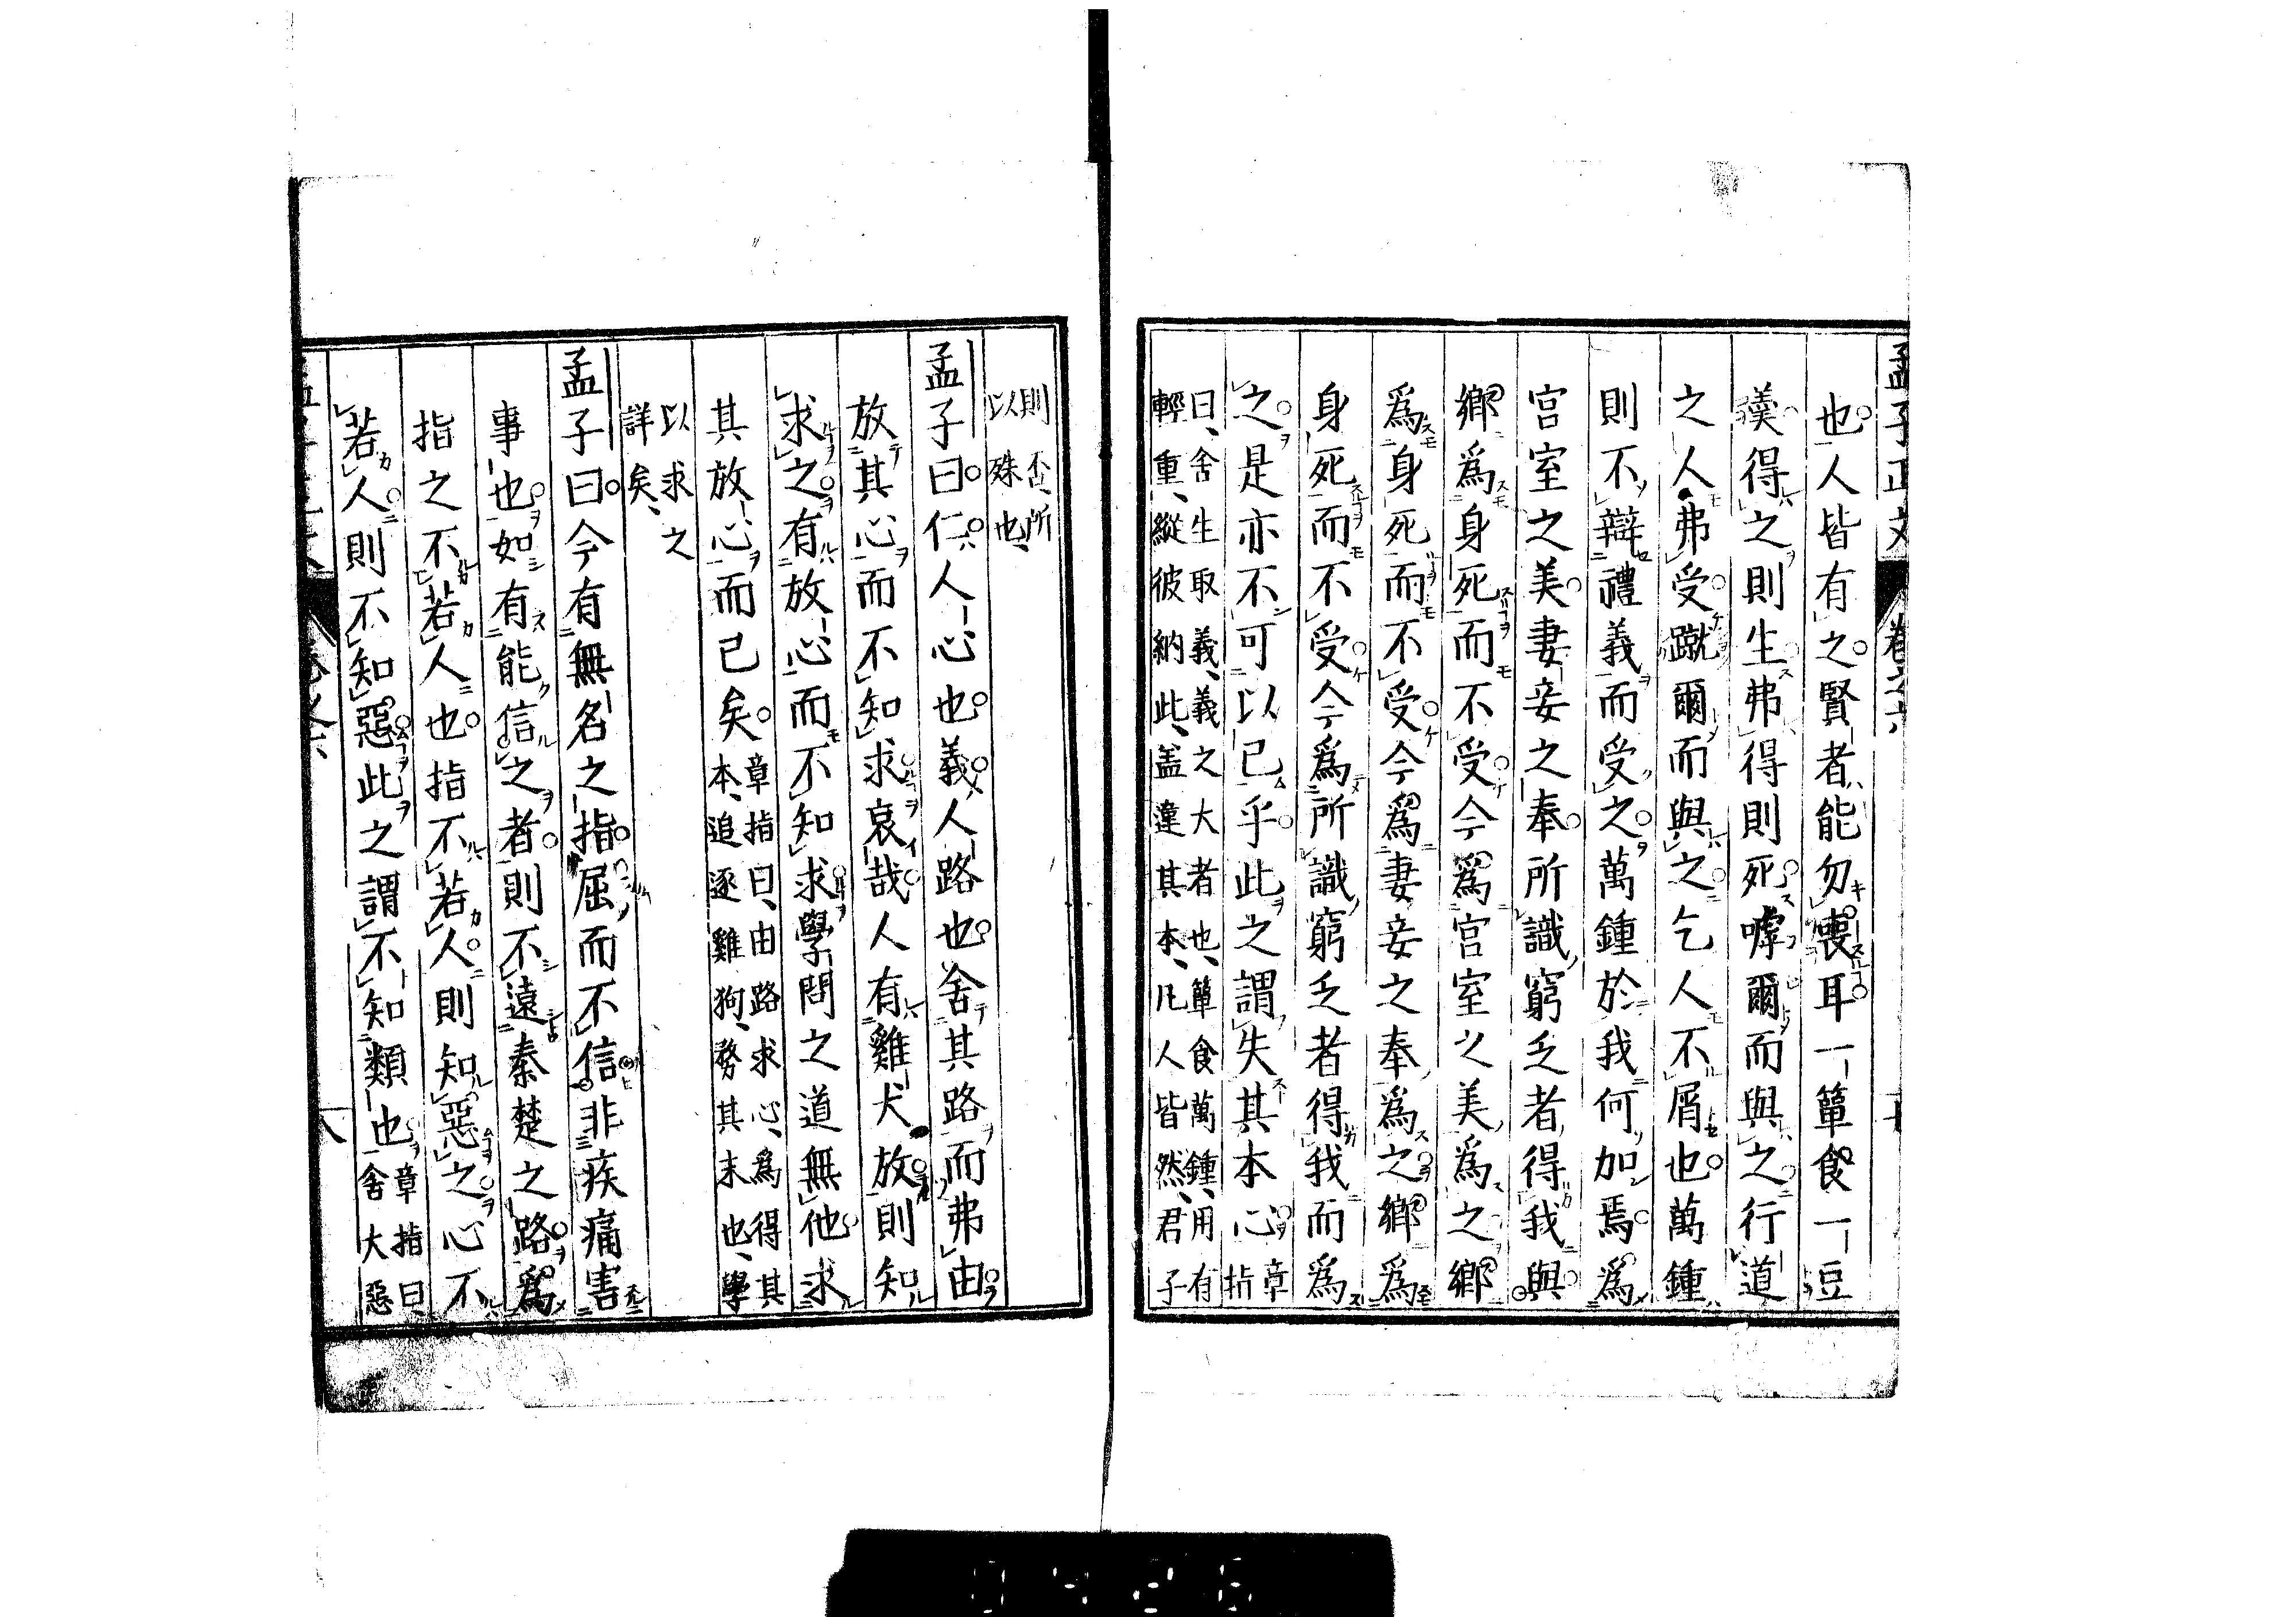 也人皆有之賢者能勿喪耳一簞食一豆
羹得之則生弗得則死嘑爾而與之行道
之人弗受蹴爾而與之乞人不屑也萬鍾
則不辯禮義而受之萬鍾於我何加焉爲
宮室之美妻妾之奉所識窮乏者得我與
鄉爲身死而不受今爲宮室之美爲之鄉
爲身死而不受今爲妻妾之奉爲之鄉爲
身死而不受今爲所識窮乏者得我而爲
之是亦不可以已乎此之謂失其本心章指
曰舍生取義義之大者也簞食萬鍾用有
輕重縱彼納此蓋違其本凡人皆然君子
則否所
以殊也
孟子曰仁人心也義人路也舍其路而弗由
放其心而不知求哀哉人有雞犬放則知
求之有放心而不知求學問之道無他求
其放心而已矣章指曰由路求心爲得其
本追逐雞狗務其末也學
以求之
詳矣
孟子曰今有無名之指屈而不信非疾痛害
事也如有能信之者則不遠秦楚之路爲
指之不若人也指不若人則知惡之心不
若人則不知惡此之謂不知類也章指曰
舍大惡